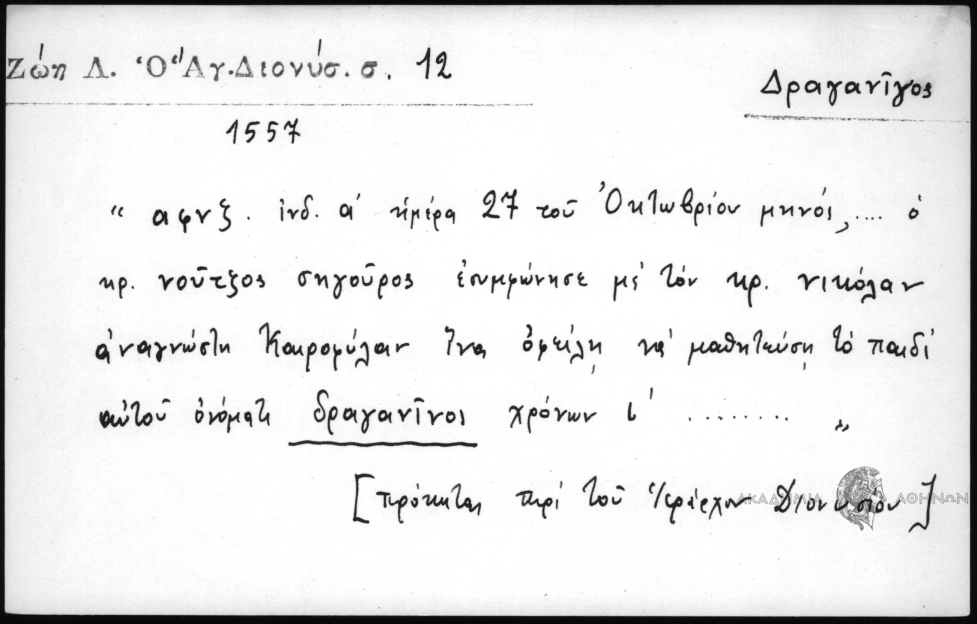 Ζώη Λ. Ὁ Ἅγ. Διονύσ. σ. 12
Δραγανῖγος
1557
" αφνζ. ἰνδ. α΄ ἡμέρα 27 τοῦ Ὀκτωβρίου μηνός, .... ὁ
κρ. νοῦτζος σηγοῦρος ἐσυμφώνησε μὲ τὸν κρ. νικόλαν
ἀναγνώστη Καιροφύλαν ἵνα ὀφείλῃ νὰ μαθητεύσῃ τὸ παιδὶ
αὐτοῦ ὀνόματι δραγανῖνος χρόνων ι΄ ........ "
[πρόκειται περὶ τοῦ Ἱεράρχου Διονυσίου]
ΑΚΑΔΗΜΙΑ ΑΘΗΝΩΝ